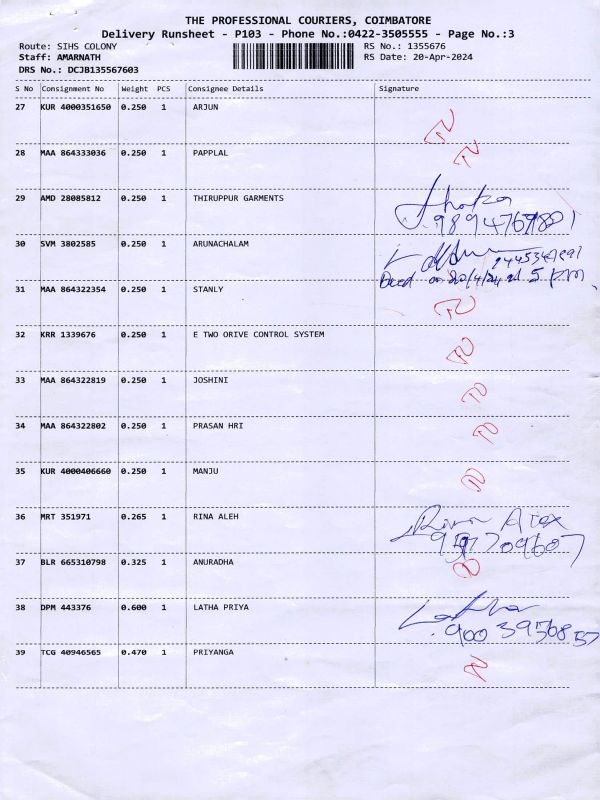 THE PROFESSIONAL COURIERS, COIMBATORE
Delivery Runsheet - P103 - Phone No.:0422-3505555 - Page No.:3
Route: SIHS COLONY RS No.: 1355676
Staff: AMARNATH RS Date: 20-Apr-2024
DRS No.: DCJB135567603
S No Consignment No Weight PCS Consignee Details Signature
27 KUR 4000351650 0.250 1 ARJUN
28 MAA 864333036 0.250 1 PAPPLAL
29 AMD 28085812 0.250 1 THIRUPPUR GARMENTS
30 SVM 3802585 0.250 1 ARUNACHALAM
on 20/4/24 at 5 pm
31 MAA 864322354 0.250 1 STANLY
32 KRR 1339676 0.250 1 E TWO ORIVE CONTROL SYSTEM
33 MAA 864322819 0.250 1 JOSHINI
34 MAA 864322802 0.250 1 PRASAN HRI
35 KUR 4000406660 0.250 1 MANJU
36 MRT 351971 0.265 1 RINA ALEH
37 BLR 665310798 0.325 1 ANURADHA
38 DPM 443376 0.600 1 LATHA PRIYA
Latha
9003956857
39 TCG 40946565 0.470 1 PRIYANGA